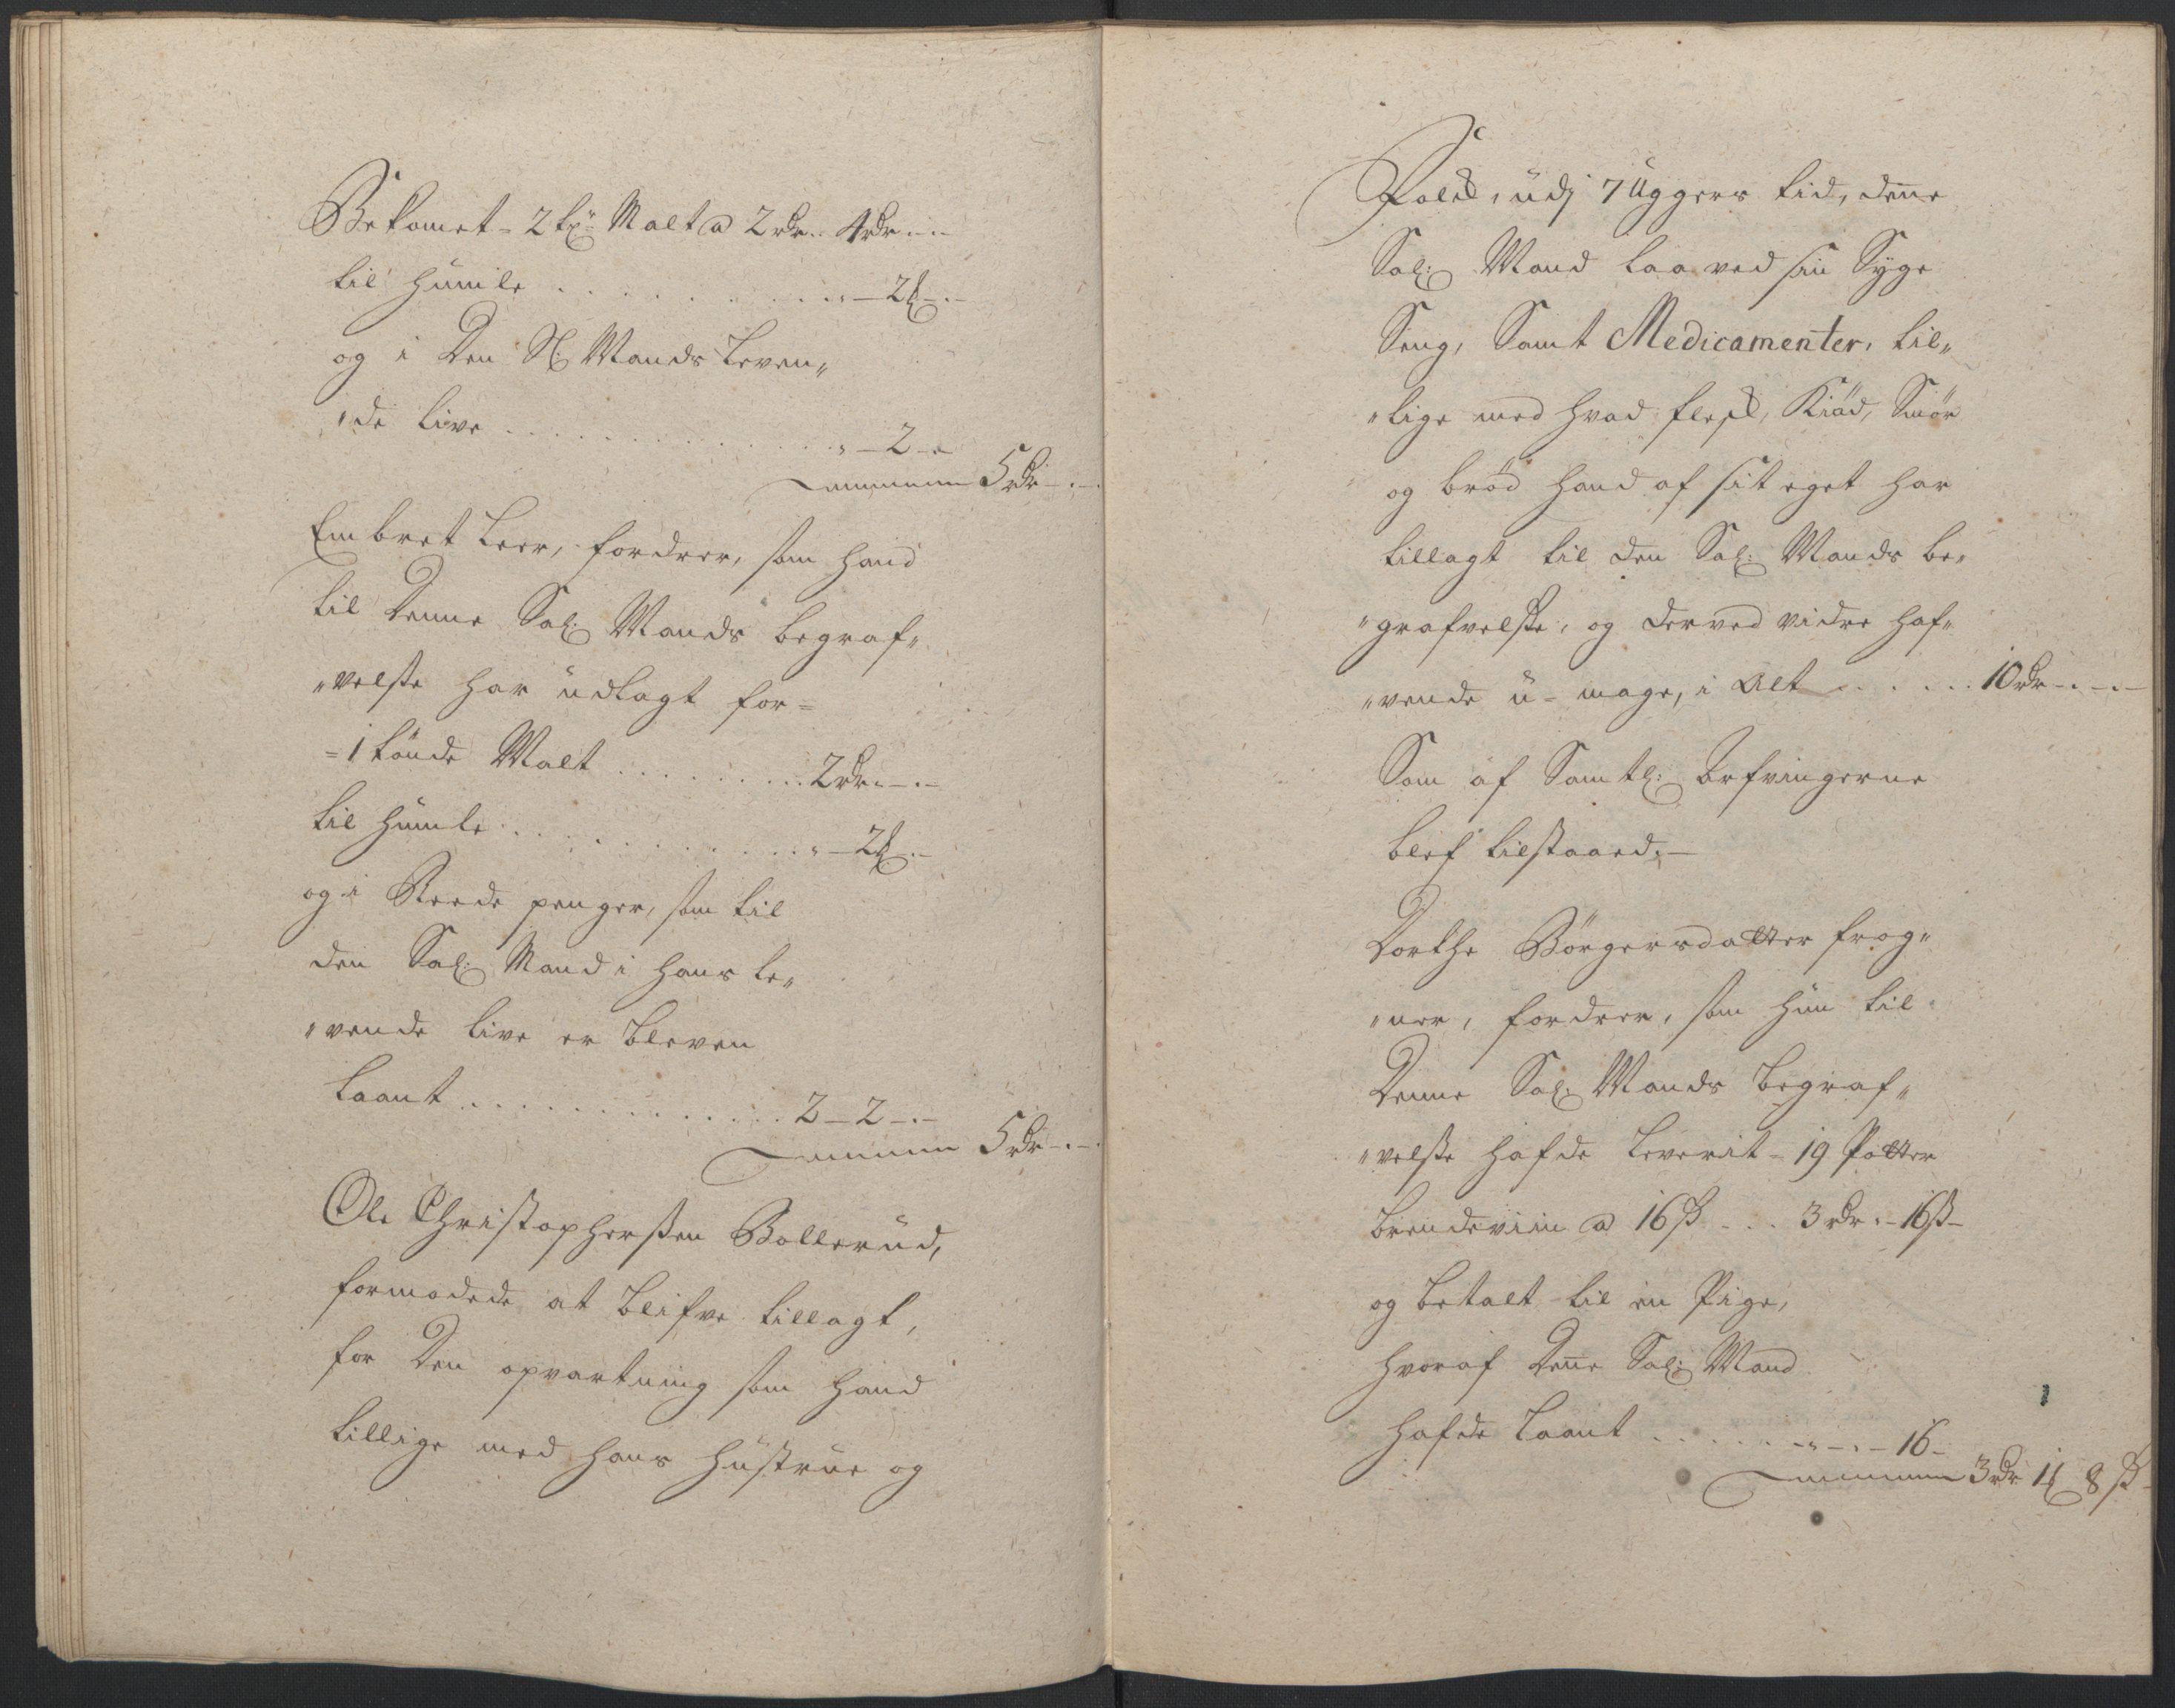 Bekomet - 2 tr: Malt a 2 rdr.. 4 rdr.-.-
til humle . . . . . . . . . . . „ - 2 ʒ -.-
og i Den Sl: Mands Leven„
„de live . . . . . . . . . . . „ - 2 - „
Summa 5 rdr -.-
Embret Leer, fordrer, som hand
til Denne Sal: Mands begraf„
„velsse har udlagt for =
= 1 tønde Malt . . . . . . . . 2 rdr.-.-
til humle . . . . . . . . . . „ - 2 ʒ.-
og i Reede penger, som til
den Sal: Mand i hans le„
„vende live er bleven
laant . . . . . . . . . . . . 2 - 2 -.-
Summa 5 rdr -.-
Ole Christophersen Bollerud,
formodede at blifve tillagt,
for Den opvartning som hand
tillige med hans hustrue og
Folck, udj 7 Uggers tid, denne
Sal: Mand laa ved sin Syge
Seng, Samt Medicamenter, til„
„lige med hvad flesk, Kiød, Smør
og brød hand af sit eget har
tillagt til den Sal: Mands be„
„grafvelsse, og derved vidre haf„
„vende u-mage, i Alt . . . . . 10 rdr -.-.-
Som af Samtl: Arfvingerne
blef tilstaaed. -
Dorthe Børgersdatter frog„
„ner, fordrer, som hun til
Denne Sal: Mands begraf„
„velsse hafde leverit - 19 Potter
brendeviin a 16 ß . . . 3 rdr. - 16 ß -
og betalt til en Pige,
hvoraf Denne Sal: Mand
hafde laant . . . . . „ -.- 16 -
Summa 3 rdr 1 ʒ 8 ß -